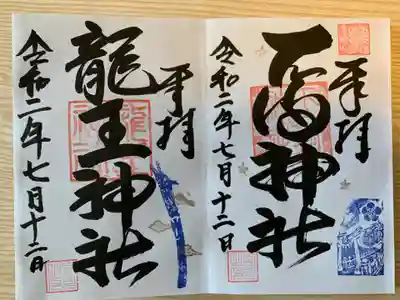 奉拝
神社
令和二年七月十二日
奉拝
龍王神社
令和二年七月十二日